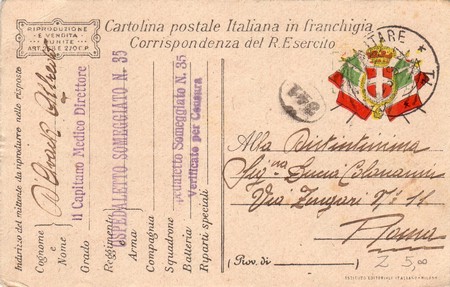 RIPRODUZIONE
E VENDITA
PUNITE
Cartolina postale Italiana in franchigia
Corrispondenza del R. Esercito
ITARE
Indirizzo del mittente da riprodurre nelle risposte
Cognome
e
Nome
Alfredo
Grado
Il Capitano Medico Direttore
Reggimento
OSPEDALETTO SOMEGGIATO N. 35
Arma
Compagnia
Squadrone
Ospedaletto Someggiato N. 35
Batteria
Verificato per Censura
Riparti speciali
Alla Distintissima
Sig.na
Via Zingari N° 11
Roma
(Prov. di
)
Z 5,00
ISTITUTO EDITORIALE ITALIANO - MILANO